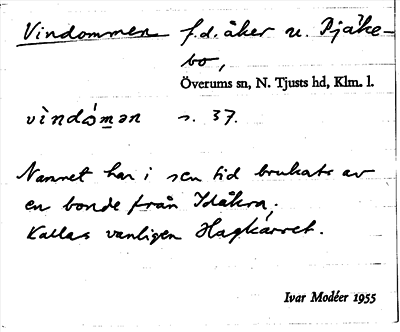 Vindommen f.d. åker u. Pjäke-
bo,
Överums sn, N. Tjusts hd, Klm. l.
vìndómən s. 37.
Namnet har i sen tid brukats av
en bonde från Idåkra.
Kallas vanligen Hagkärret.
Ivar Modéer 1955